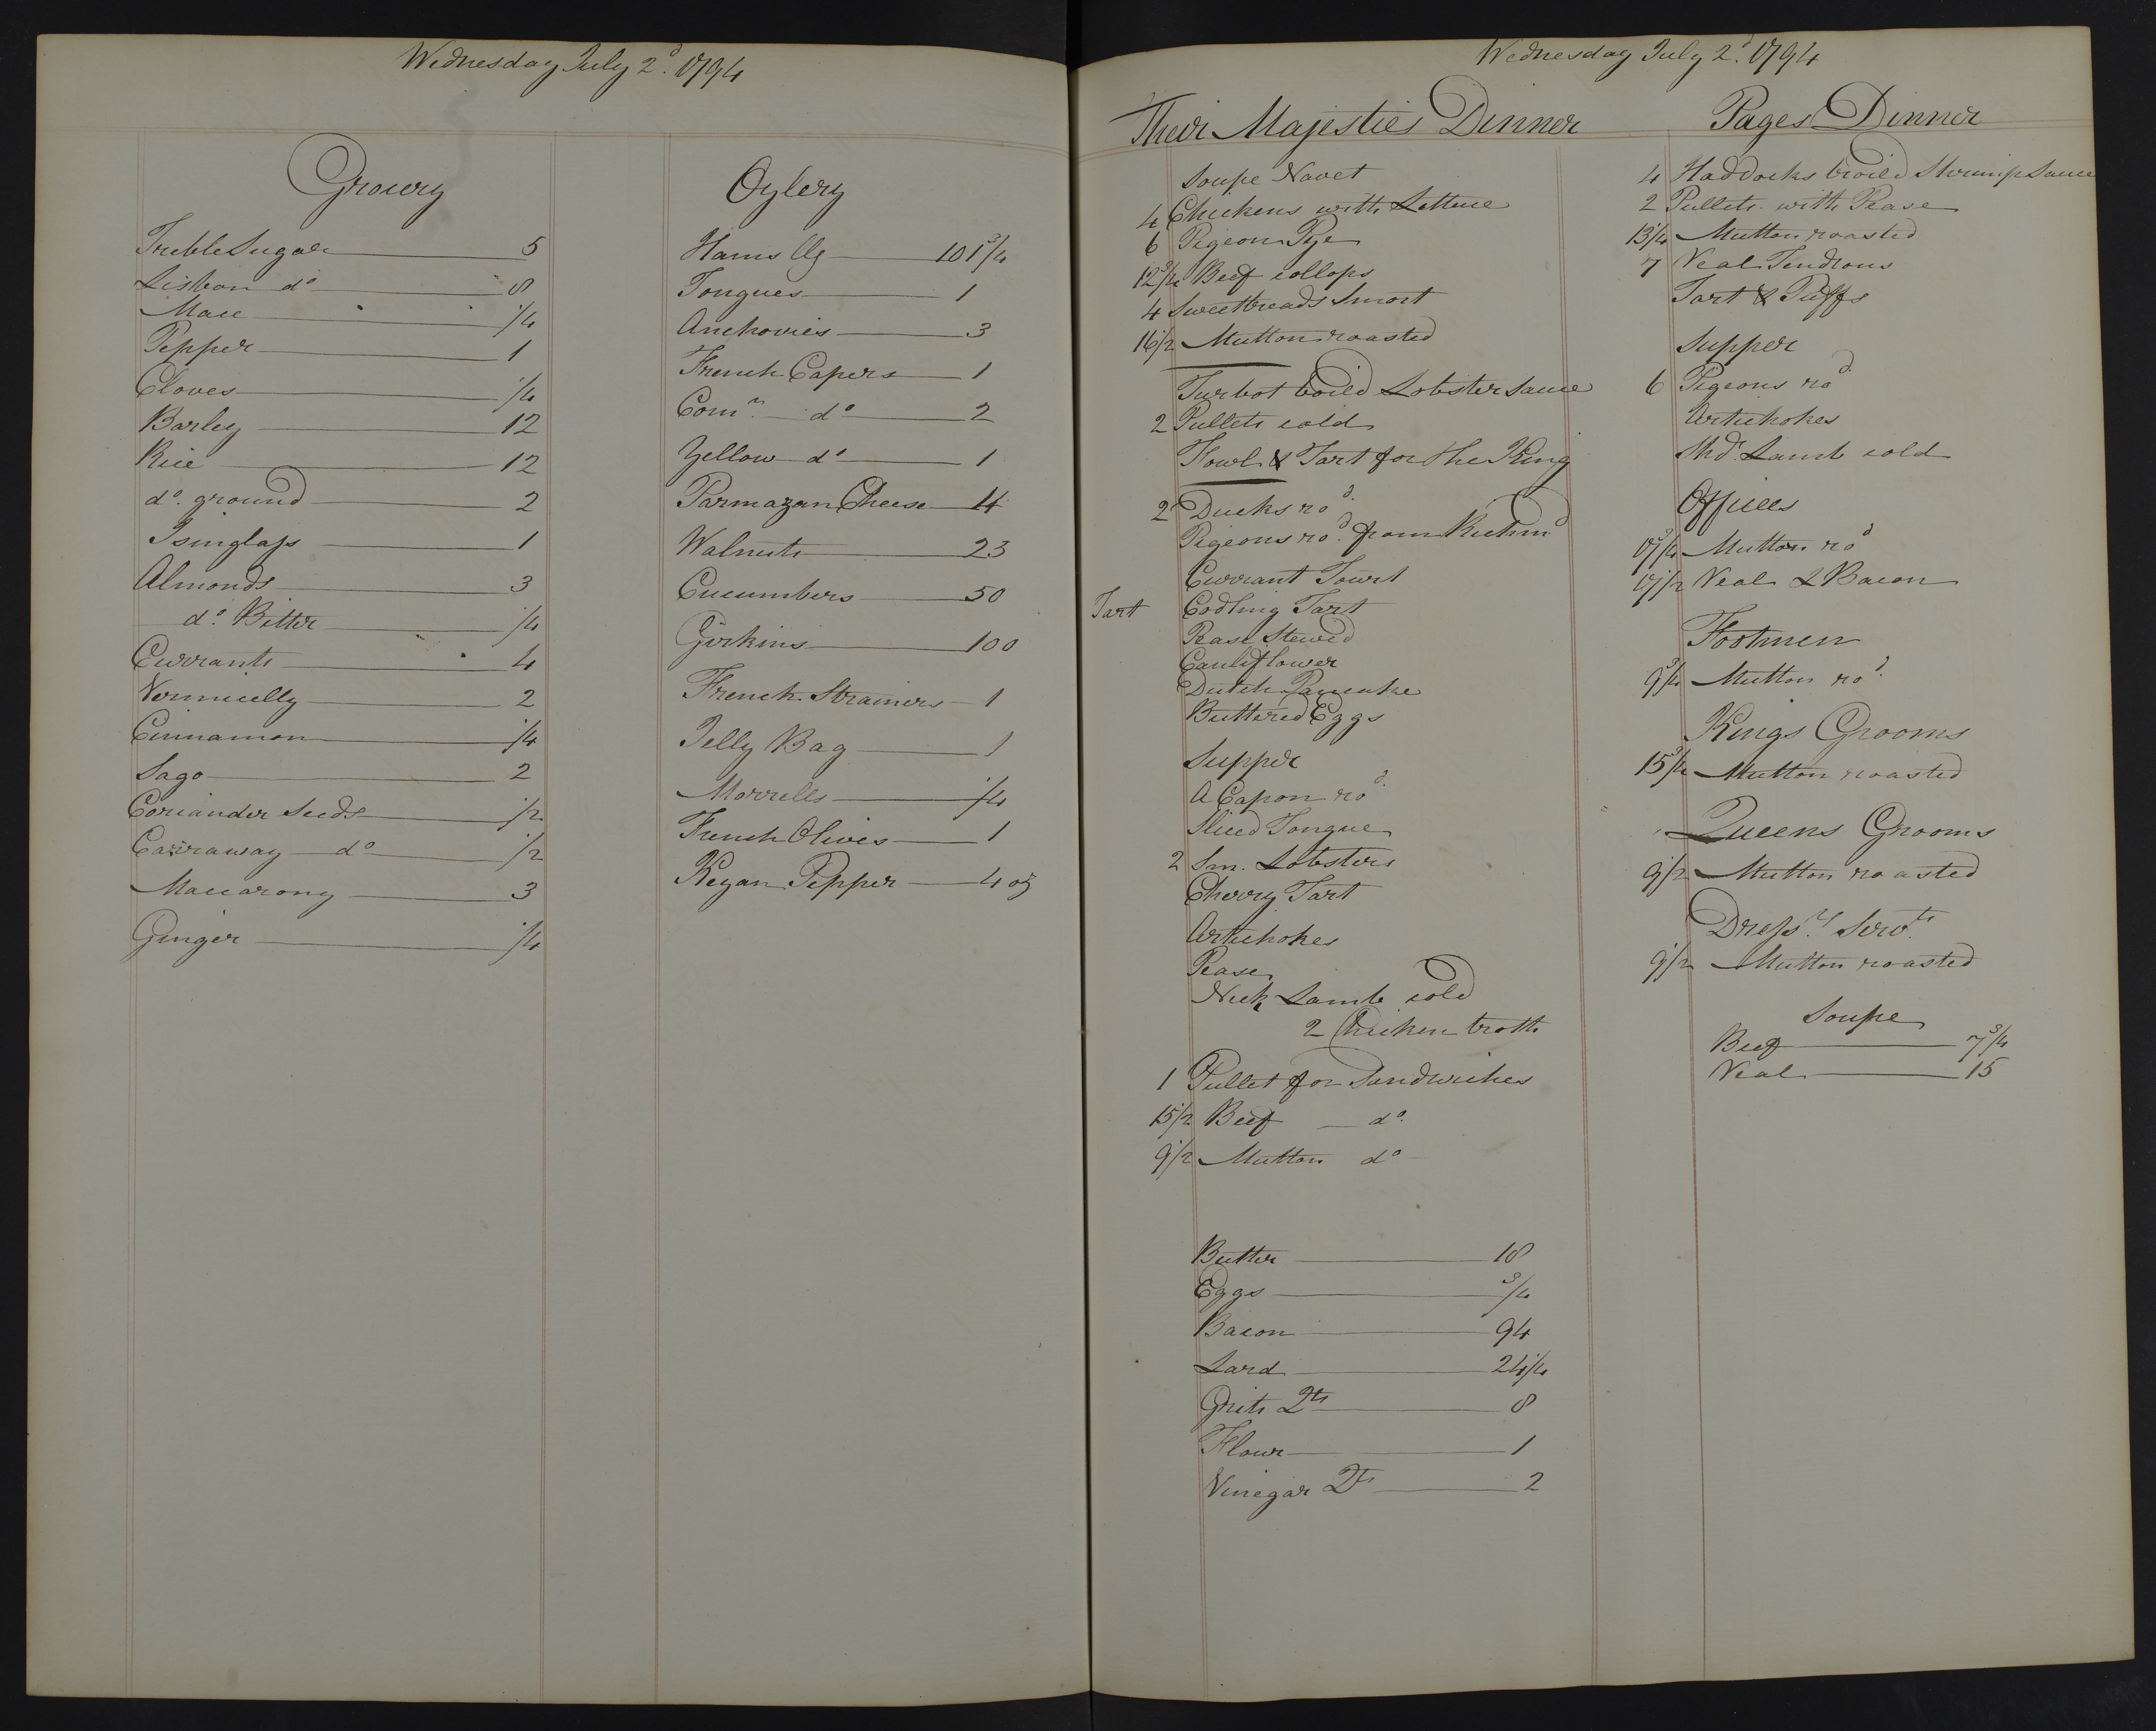 Wednesday July 2d. 1794
Grocery
Treble Sugar 5
Lisbon do 8
Mace 1/4
Pepper 1
Cloves 1/4
Barley 12
Rice 12
do. ground 2
Isinglass 1
Almonds 3
do. Bitter 1/4
Currants 4
Vermicelly 2
Cinnamon 1/4
Sago 2
Coriander Seeds 1/2
Carraway do 1/2
Maccarony 3
Ginger 1/4
Oylery
Hams llg 101 3/4
Tongues 1
Anchovies 3
French Capers 1
Comn. do 2
Yellow do 1
Parmazan Cheese 4
Walnuts 23
Cucumbers 50
Girkins 100
French Strainers 1
Jelly Bag 1
Morrells 1/4
French Olives 1
Keyan Pepper 4 oz
Wednesday July 2d. 1794
Their Majesties Dinner
Soupe Navet
4 Chickens with Lettuce
6 Pigeon Pye
12 3/4 Beef collops
4 Sweetbreads Smort
16 1/2 Mutton roasted
Turbot boild Lobster Sauce
2 Pullets cold
Fowl & Tart for the King
2 Ducks rod.
Pigeons rod. from Richmd
Currant Tourt
Tart Codling Tart
Pease Stewed
Cauliflower
Dutch Pancake
Buttered Eggs
Supper
A Capon rod.
Sliced Tongue
2 Sm. Lobsters
Cherry Tart
Artichokes
Pease
Neck Lamb cold
2 Chicken broth
1 Pullet for Sandwiches
15 1/2 Beef do.
9 1/2 Mutton do
Butter 18
Eggs 3/4
Bacon 94
Lard 24 1/4
Grits Qts 8
Flour 1
Vinegar Qts 2
Pages Dinner
4 Haddocks broild Shrimp Sauce
2 Pullets with Pease
13 1/4 Mutton roasted
7 Veal Tendrons
Tart & Puffs
Supper
6 Pigeons rod.
Artichokes
Shdr. Lamb cold
Offices
17 3/4 Mutton rod
17 1/2 Veal & Bacon
Footmen
9 3/4 Mutton rod.
Kings Grooms
15 3/4 Mutton roasted
Queens Grooms
9 1/2 Mutton roasted
Dressr. Servts.
9 1/2 Mutton roasted
Soupe
Beef 7 3/4
Veal 15